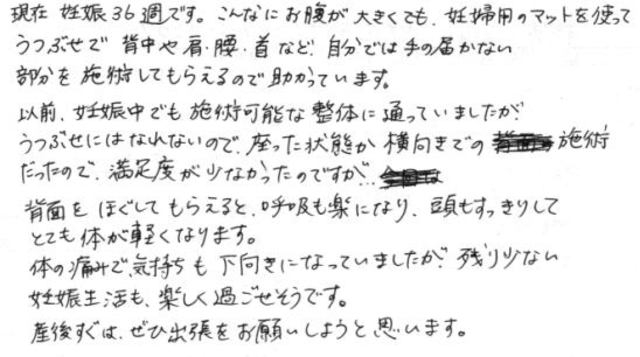 現在 妊娠36週です。こんなにお腹が大きくても、妊婦用のマットを使って
うつぶせで 背中や肩・腰・首など、自分では手の届かない
部分を施術してもらえるので助かっています。
以前、妊娠中でも施術可能な整体に通っていましたが
うつぶせにはなれないので、座った状態か横向きでの 施術
だったので、満足度が少なかったのですが、
背面をほぐしてもらえると、呼吸も楽になり、頭もすっきりして
とても体が軽くなります。
体の痛みで、気持ちも下向きになっていましたが、残り少ない
妊娠生活も、楽しく過ごせそうです。
産後すぐは、ぜひ出張をお願いしようと思います。